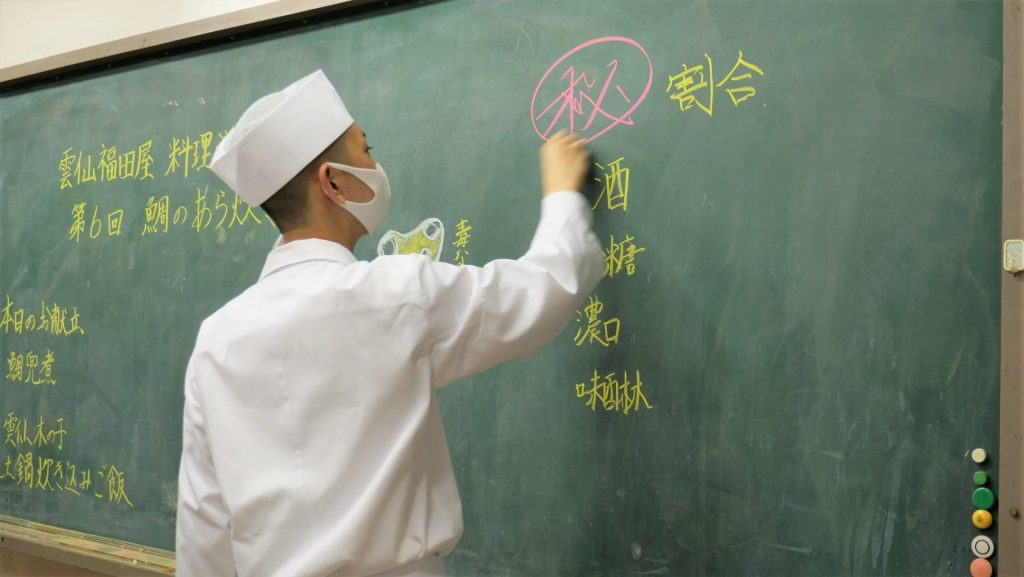 雲仙福田屋 料理
第6回 鯛のあら炊
本日のお献立
鯛兜煮
雲仙木の子
土鍋炊き込みご飯
毒な
秘 割合
酒
糖
濃口
味醂